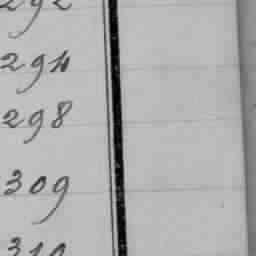 292
294
298
309
310